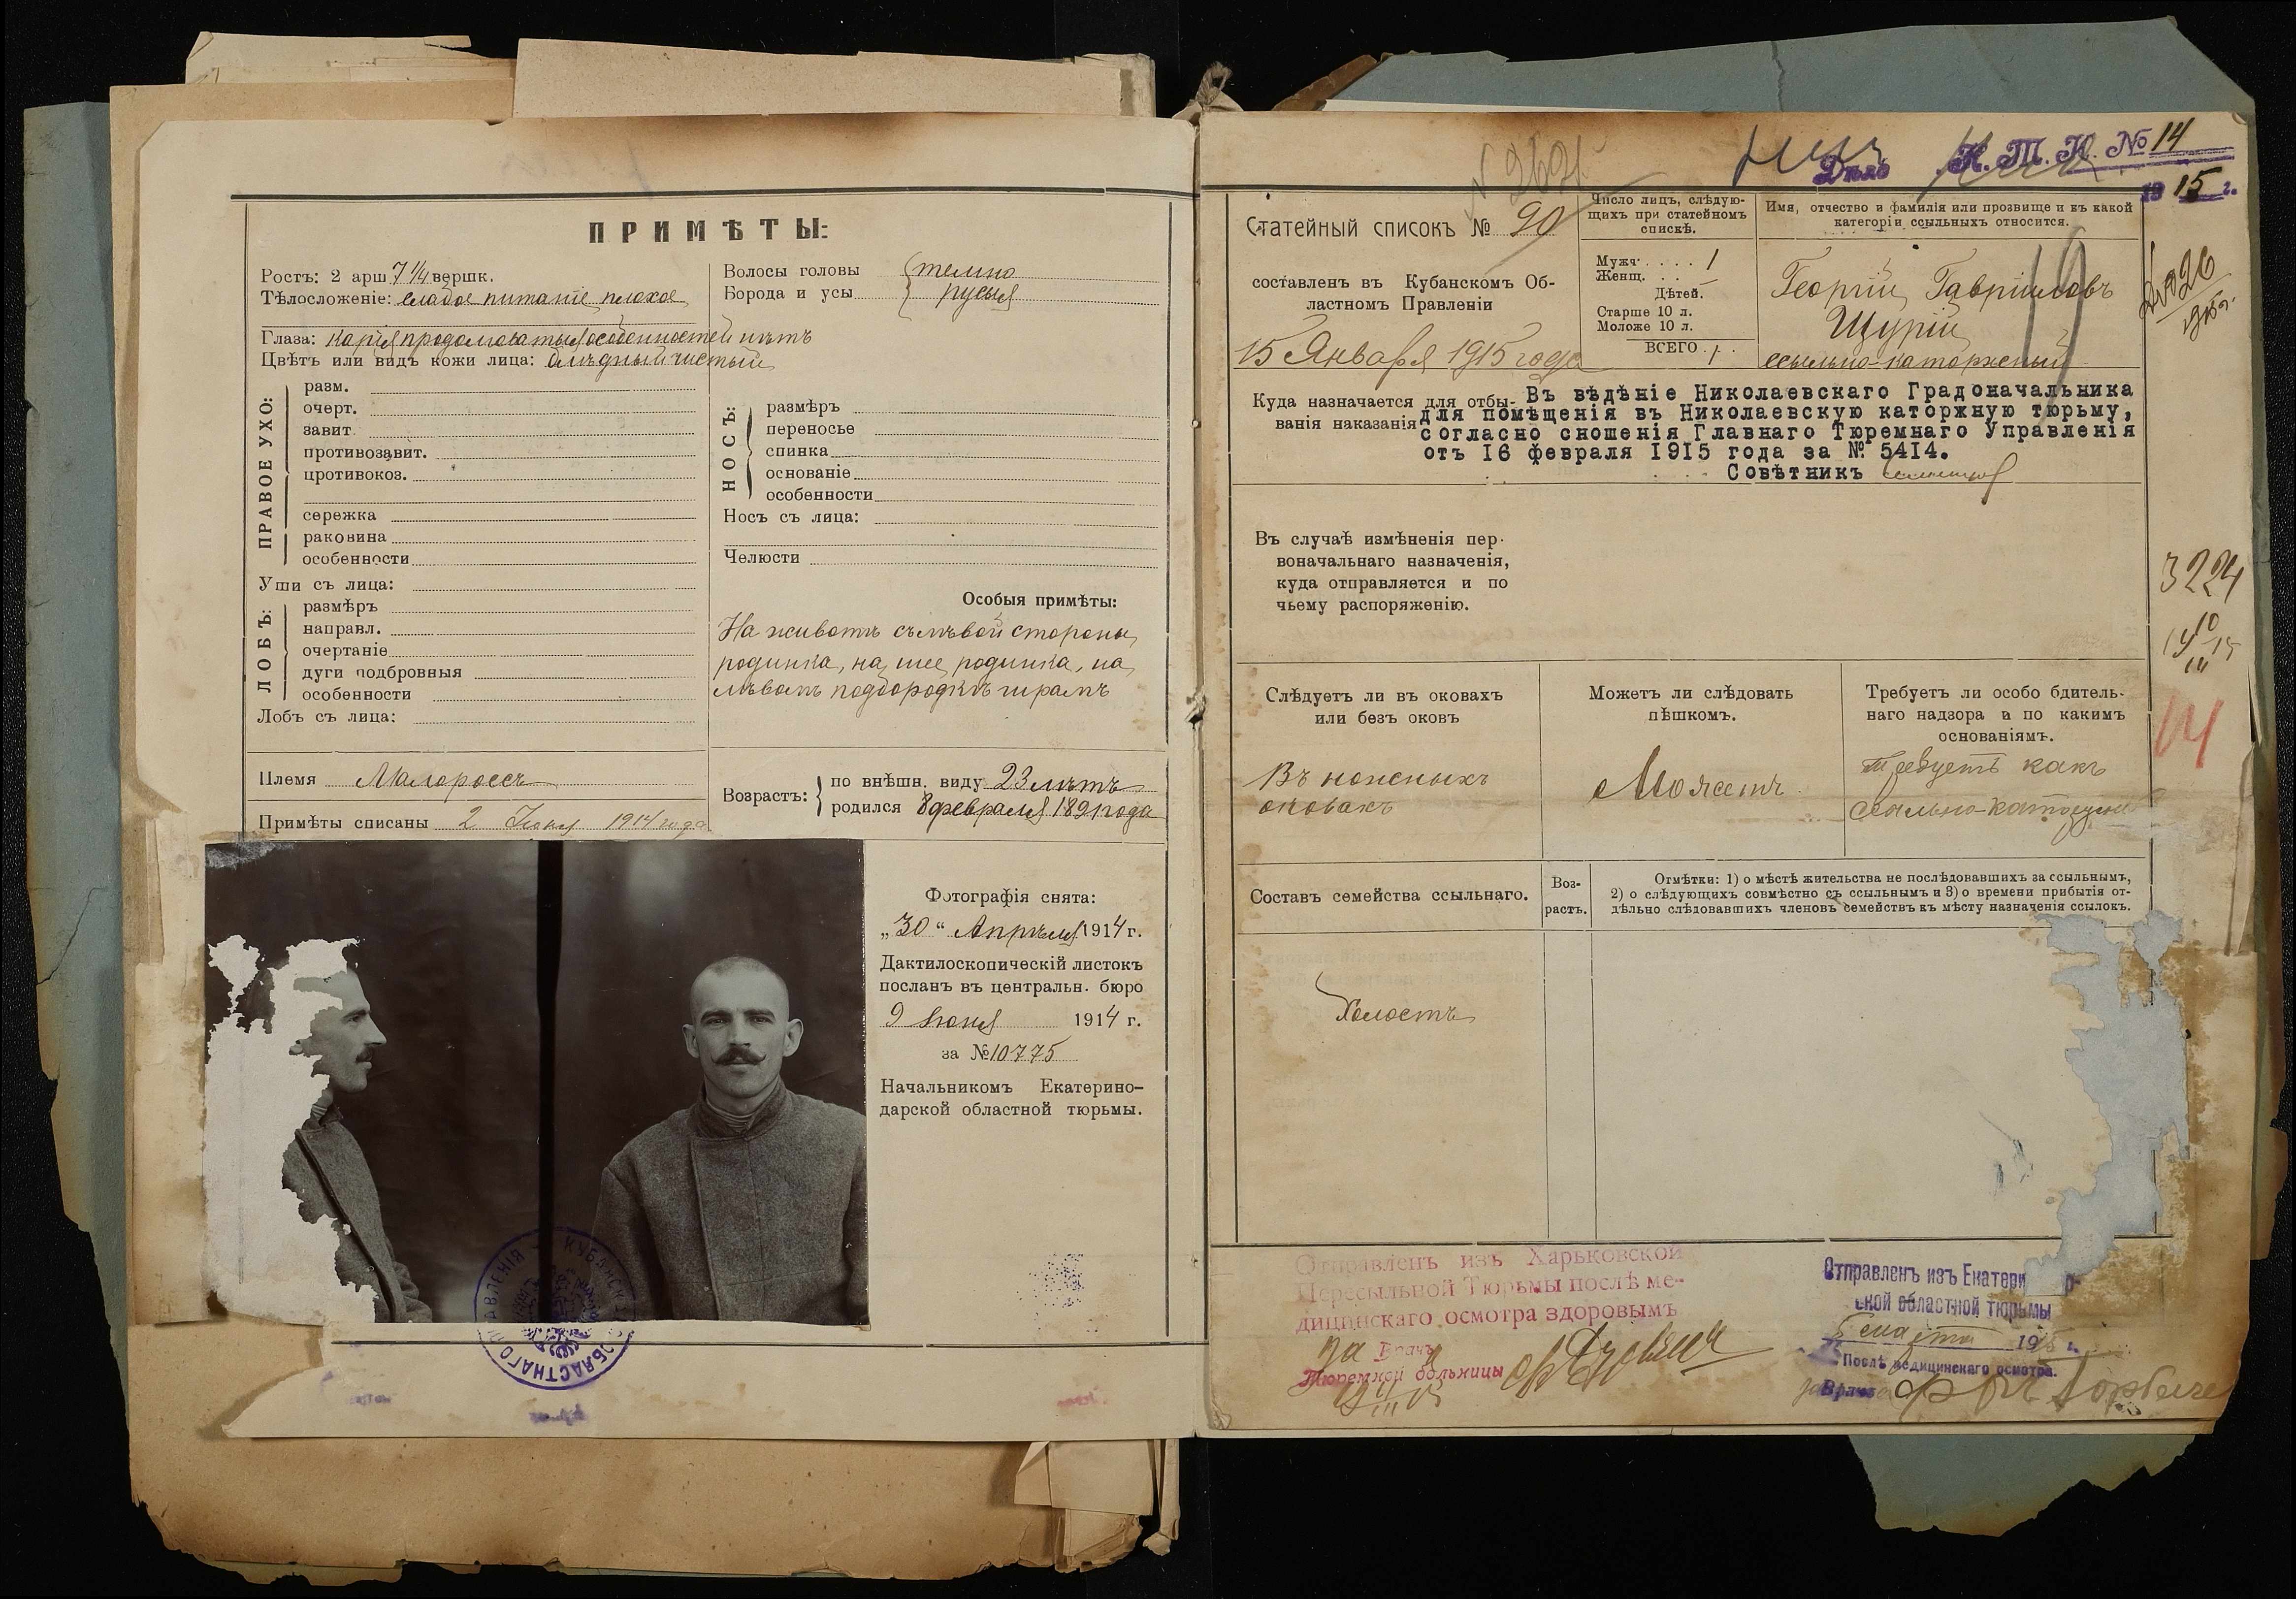 ПРИМѢТЫ:
Ростъ: 2 арш 7 1/4 вершк.
Тѣлосложеніе: слабое питаніе плохое
Глаза: каріе продолговатые особенностей нѣтъ
Цвѣтъ или видъ кожи лица: блѣдный чистый
Волосы головы
Борода и усы
темно
русыя
ПРАВОЕ УХО:
разм.
очерт.
завит.
противозавит.
противокоз.
сережка
раковина
особенности
Уши съ лица:
ЛОБЪ:
размѣръ
направл.
очертаніе
дуги подбровныя
особенности
Лобъ съ лица:
НОСЪ:
размѣръ
переносье
спинка
основаніе
особенности
Носъ съ лица:
Челюсти
Особыя примѣты:
На животѣ съ лѣвой стороны
родинка, на шее родинка, на
лѣвомъ подбородкѣ шрамъ
Племя Малороссъ
Примѣты списаны 2 Іюня 1914 года
Возрастъ:
по внѣшн. виду 23 лѣтъ
родился 8 февраля 1891 года
Фотографія снята:
„30“ Апрѣля 1914 г.
Дактилоскопическій листокъ
посланъ въ центральн. бюро
9 Іюня 1914 г.
за № 10775
Начальникомъ Екатерино-
дарской областной тюрьмы.
Дѣло К. Т. Н. № 14
1915 г.
Статейный списокъ № 90
составленъ въ Кубанскомъ Об-
ластномъ Правленіи
15 Января 1915 года
Число лицъ, слѣдую-
щихъ при статейномъ
спискѣ.
Мужч. . . . . 1
Женщ. . . . –
Дѣтей.
Старше 10 л.
Моложе 10 л.
ВСЕГО . 1 .
Имя, отчество и фамилія или прозвище и къ какой
категоріи ссыльныхъ относится.
Георгій Гавріиловъ
Щурій
ссыльно-каторжный
№ 926
1915 г.
Куда назначается для отбы-
ванія наказанія
Въ вѣдѣніе Николаевскаго Градоначальника
для помѣщенія въ Николаевскую каторжную тюрьму,
согласно сношенія Главнаго Тюремнаго Управленія
отъ 16 февраля 1915 года за № 5414.
Совѣтникъ
Въ случаѣ измѣненія пер-
воначальнаго назначенія,
куда отправляется и по
чьему распоряженію.
3224
14
Слѣдуетъ ли въ оковахъ
или безъ оковъ
Въ ножныхъ
оковахъ
Можетъ ли слѣдовать
пѣшкомъ.
Можетъ
Требуетъ ли особо бдитель-
наго надзора и по какимъ
основаніямъ.
Требуетъ какъ
ссыльно-каторжный
Составъ семейства ссыльнаго.
Воз-
растъ.
Отмѣтки: 1) о мѣстѣ жительства не послѣдовавшихъ за ссыльнымъ,
2) о слѣдующихъ совмѣстно съ ссыльнымъ и 3) о времени прибытія от-
дѣльно слѣдовавшихъ членовъ семействъ къ мѣсту назначенія ссылокъ.
Холостъ
КУБАНСК ОБЛАСТНАГО ПРАВЛЕНІЯ
Отправленъ изъ Харьковской
Пересыльной Тюрьмы послѣ ме-
дицинскаго осмотра здоровымъ
за Врачъ
Тюремной больницы
Отправленъ изъ Екатери р-
ской областной тюрьмы
5 марта 1915 г.
Послѣ медицинскаго осмотра.
за Врача